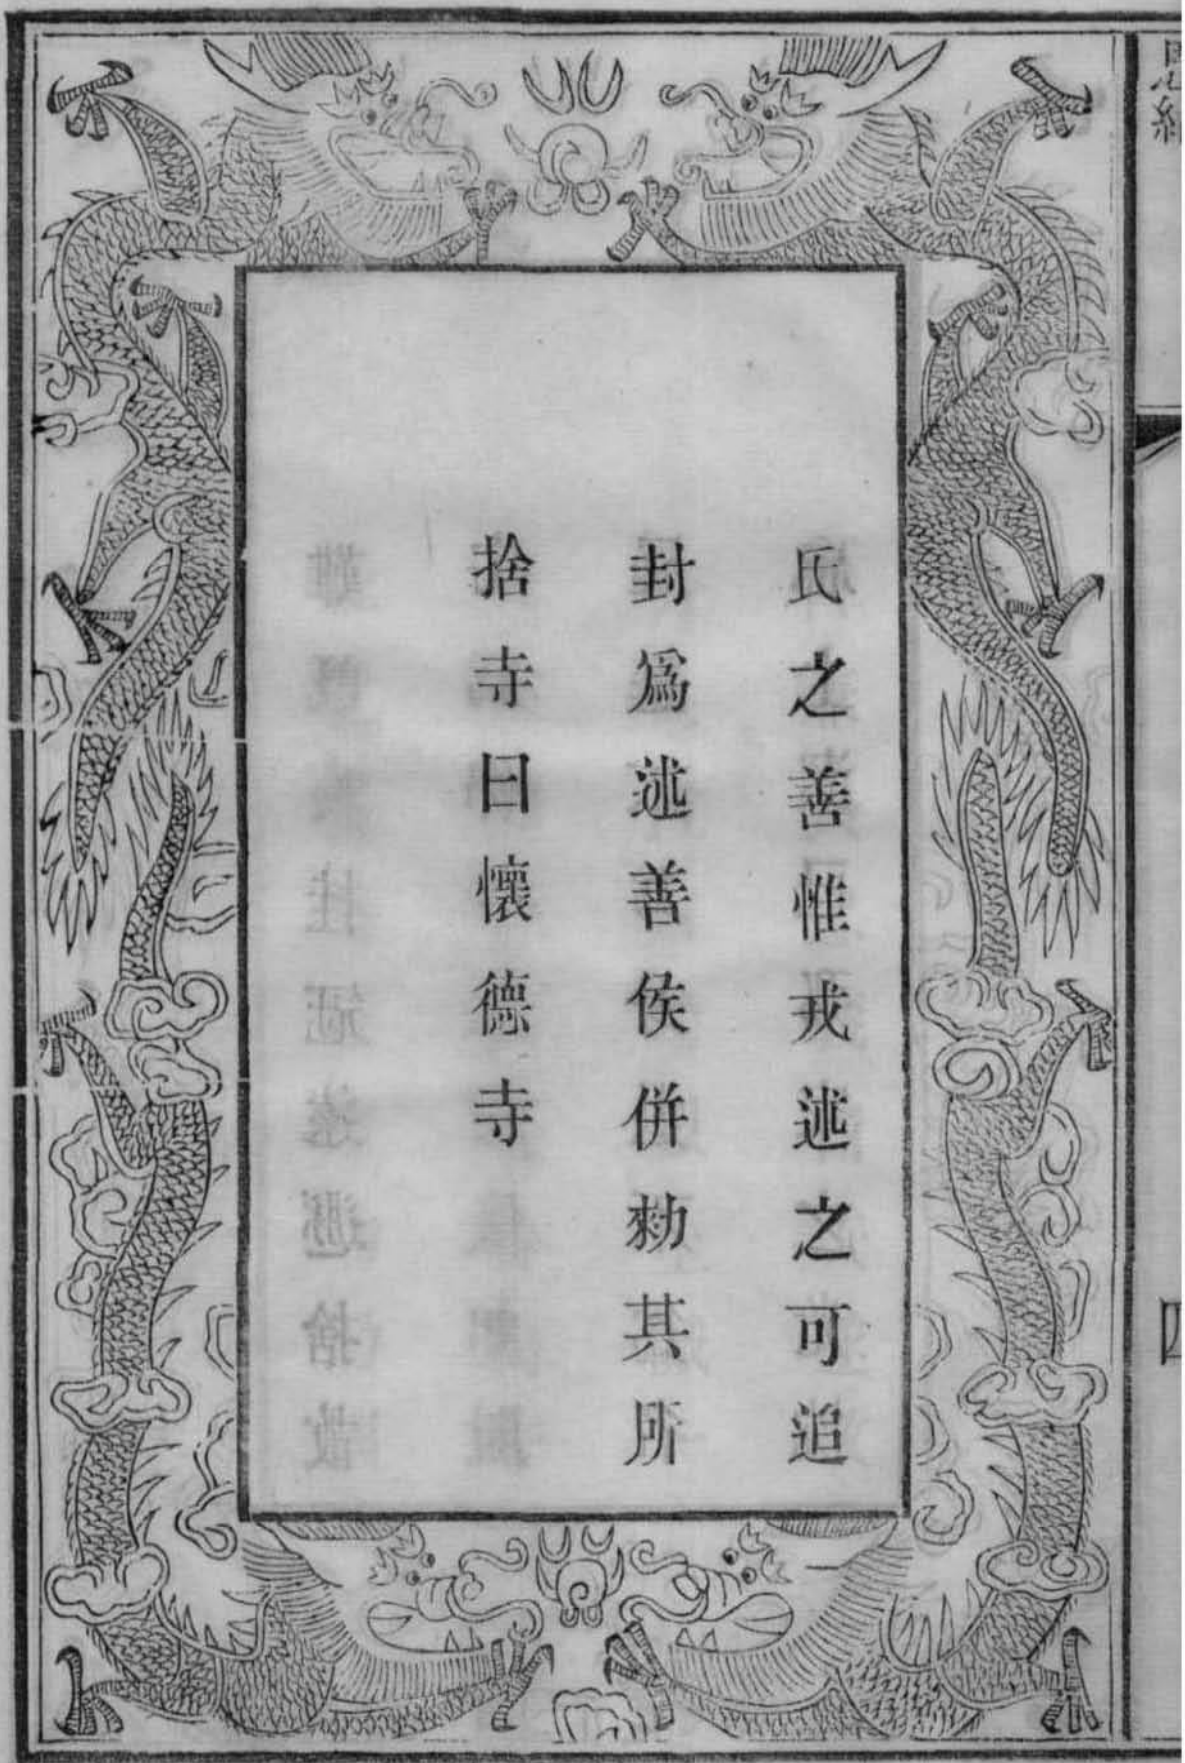 氏之善惟戎述之可追
封爲述善侯併勑其所
捨寺曰懷德寺